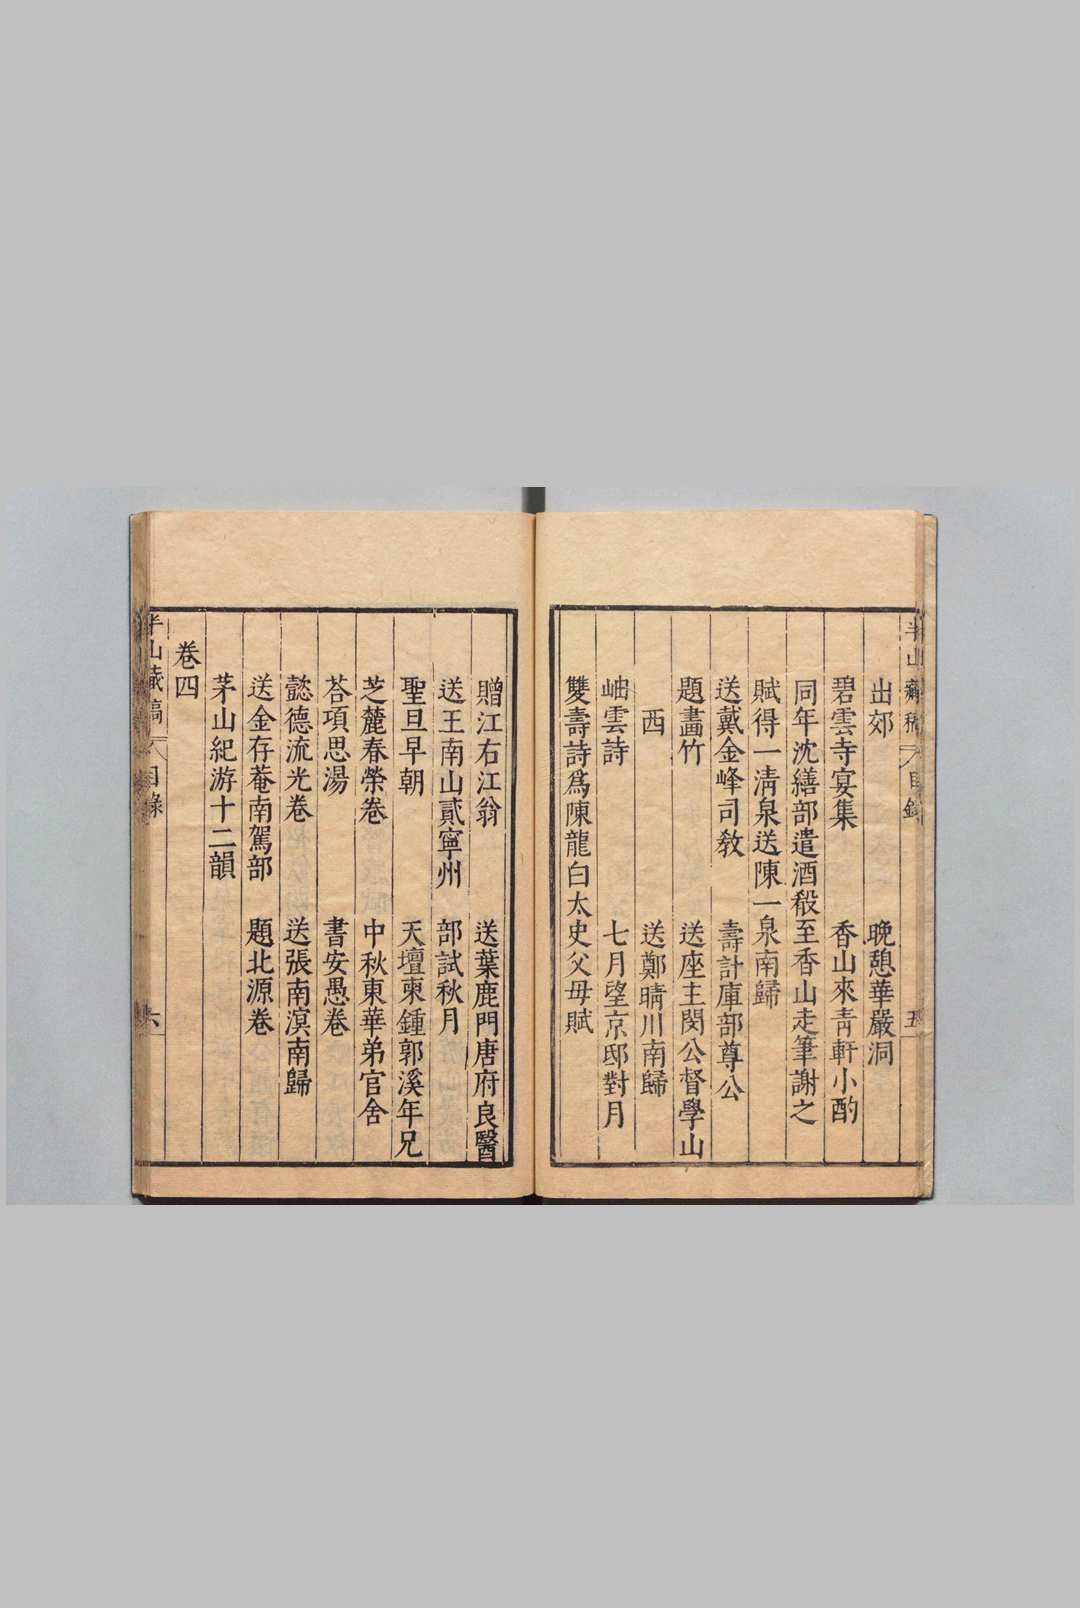 出郊　晚憩華嚴洞
碧雲寺宴集　香山來青軒小酌
同年沈繕部遣酒殽至香山走筆謝之
賦得一清泉送陳一泉南歸
送戴金峰司教　壽計庫部尊公
題畫竹　送座主閔公督學山
西　送鄭晴川南歸
岫雲詩　七月望京邸對月
雙壽詩爲陳龍白太史父母賦
贈江右江翁　送葉鹿門唐府良醫
送王南山貳寧州　部試秋月
聖旦早朝　天壇柬鍾郭溪年兄
芝麓春榮卷　中秋東華弟官舍
荅項思湯　書安愚卷
懿德流光卷　送張南溟南歸
送金存菴南駕部　題北源卷
茅山紀游十二韻
卷四
半山藏稿　目錄　六